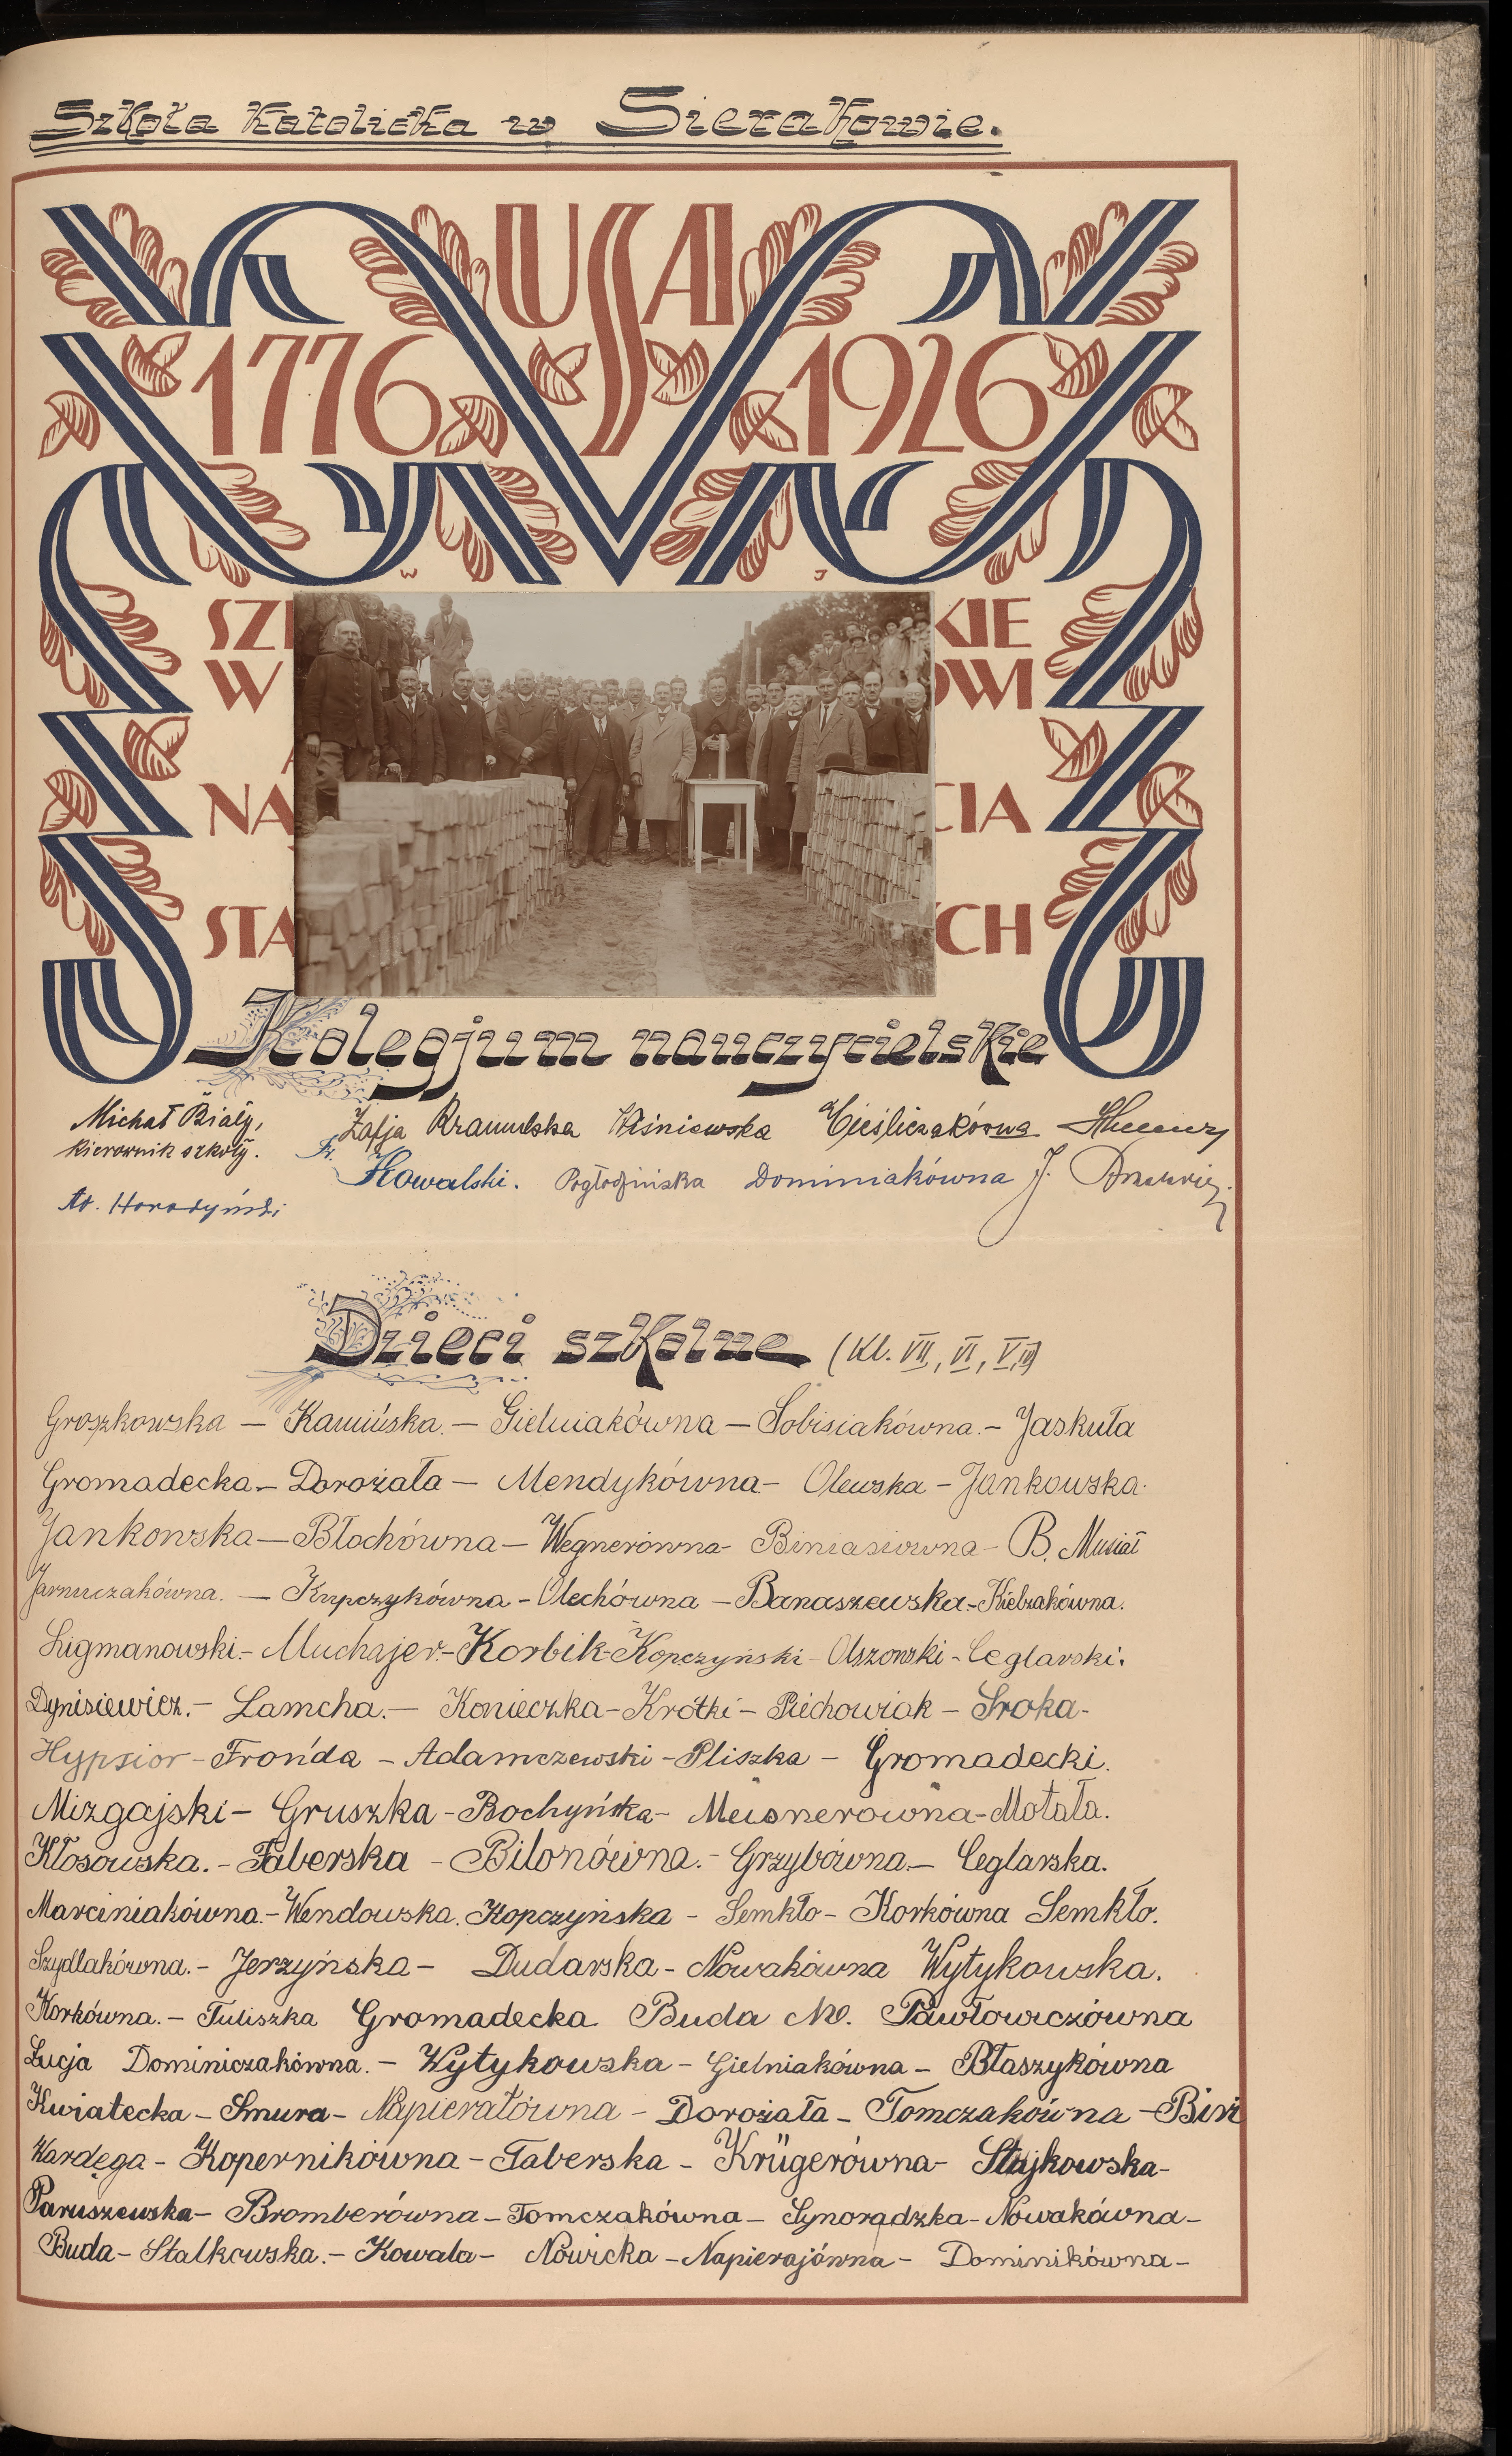 Szkoła Katolicka w Sierakowie.
USA
1776 1926
W J
KIE
W OWI
NA CIA
STA CH
Kolegjum nauczycielskie
Michał Biały, Zofja Wiśniewska Cieśliczakówna
kierownik szkoły. Fr. Kowalski. Dominiakówna J.
Dzieci szkolne (kl. VII, VI, V, IV)
Groszkowska — Kamińska. — Gielniakówna — Sobisiakówna. — Jaskuła
Gromadecka. — Dorożała — Mendykówna — Olewska — Jankowska.
Jankowska — Błochówna — Wegnerówna — Biniasiówna — B. Musiał
Jarmuczakówna. — Krupczykówna — Olechówna — Banaszewska. — Kielzakówna.
Ligmanowski. — Muchajer. — Korbik — Kopczyński — Olszowski — Ceglarski.
Dynisiewicz. — Lamcha. — Konieczka — Krótki — Piechowiak — Sroka -
Hypsior — Frońda — Adamczewski — Pliszka — Gromadecki.
Mizgajski — Gruszka — Bochyńska — Meisnerówna — Motała.
Kłosowska. — Faberska — Bilonówna. — Grzybówna. — Ceglarska.
Marciniakówna. — Wendowska. Kopczyńska — Semkło — Korkówna Semkło.
Szydlakówna. — Jerzyńska — Dudarska — Nowakówna Wytykowska.
Korkówna. — Tuliszka Gromadecka Buda M. Pawłowiczówna
Łucja Dominiczakówna. — Wytykowska — Gielniakówna — Błaszykówna
Kwiatecka — Smura — Napierałówna — Dorożała — Tomczakówna —
Wardęga — Kopernikówna — Taberska — Krügerówna — Stajkowska -
Paruszewska — Bromberówna — Tomczakówna — Synorądzka — Nowakówna —
Buda — Stalkowska. — Kowala — Nowicka — Napierajówna — Dominikówna —